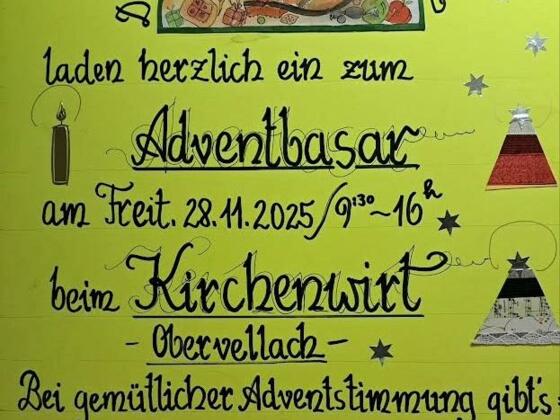 laden herzlich ein zum
Adventbasar
am Freit. 28.11.2025/9:30~16h
beim Kirchenwirt
- Obervellach -
Bei gemütlicher Adventstimmung gibt's